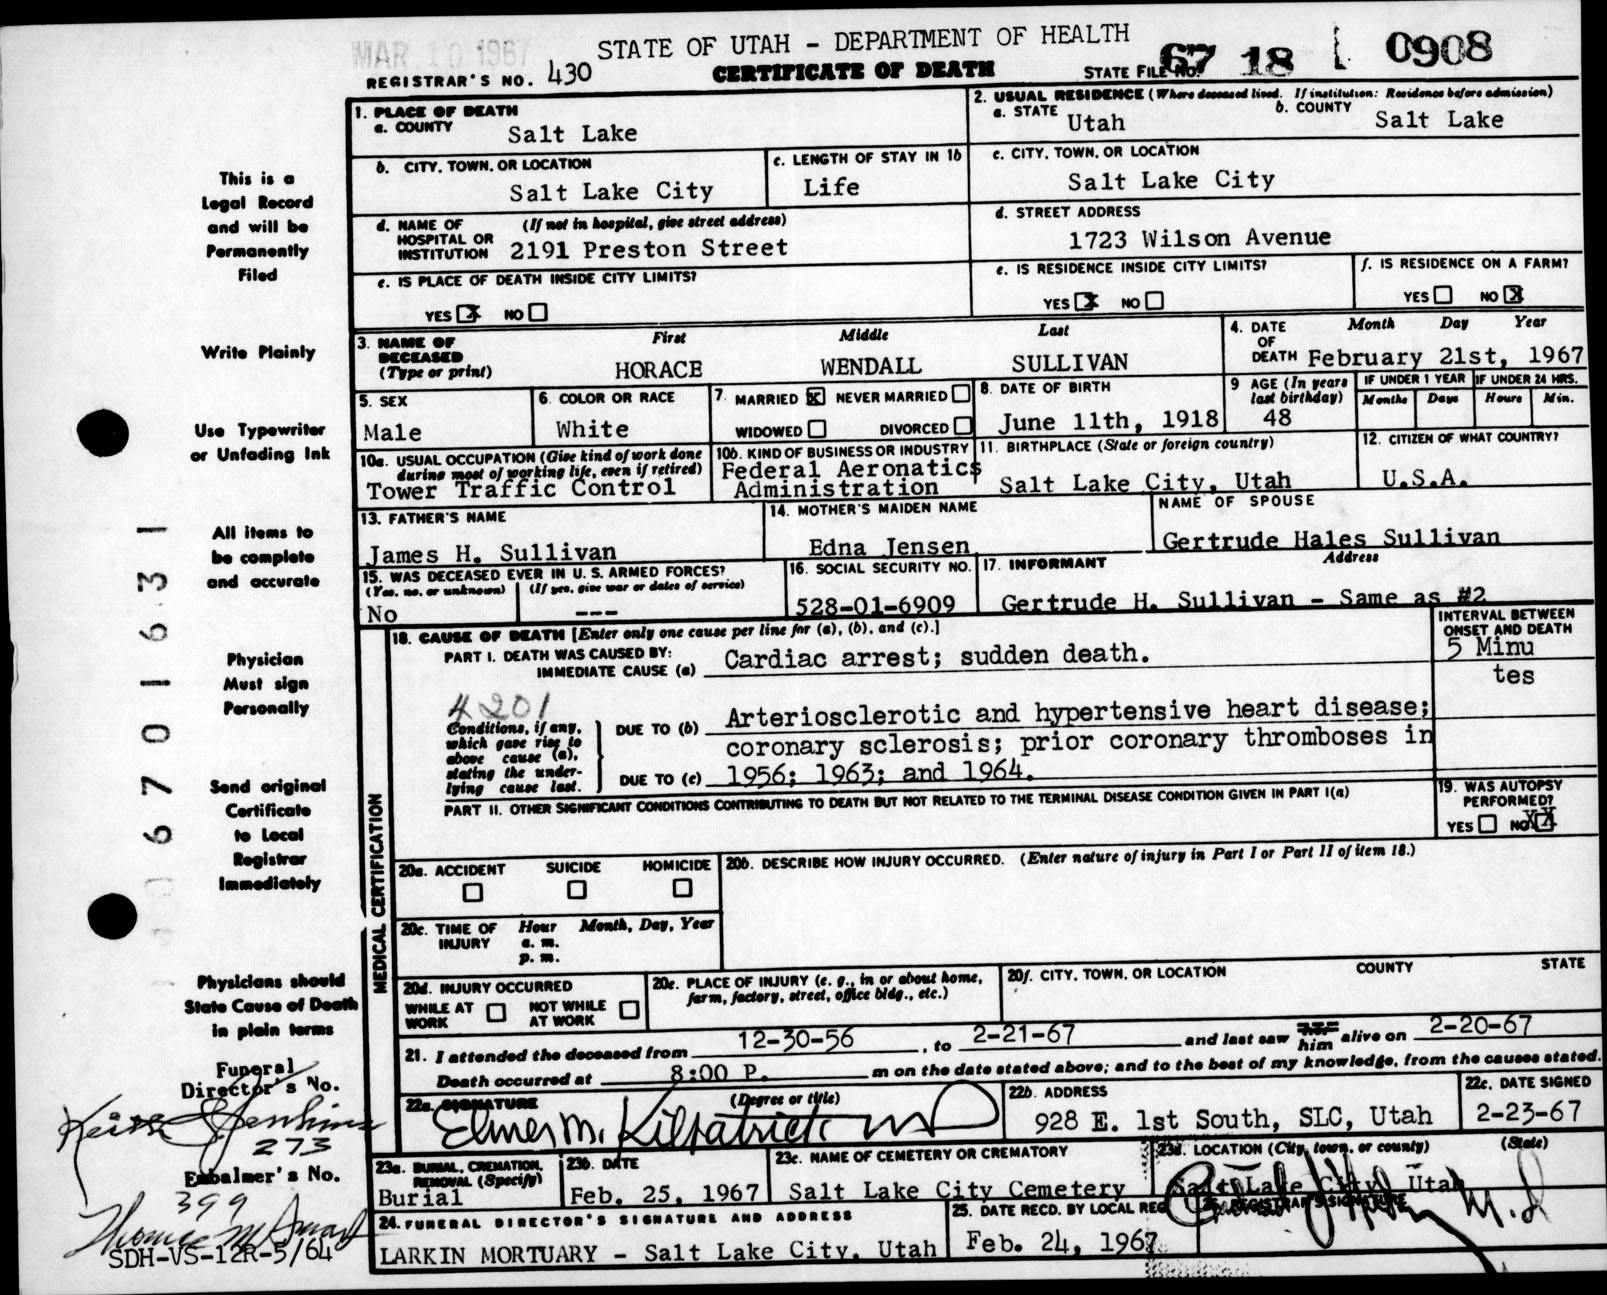 MAR 10 1967
STATE OF UTAH - DEPARTMENT OF HEALTH
REGISTRAR'S NO. 430
CERTIFICATE OF DEATH
STATE FILE NO. 67 18 0908
1. PLACE OF DEATH
a. COUNTY Salt Lake
2. USUAL RESIDENCE (Where deceased lived. If institution: Residence before admission)
a. STATE Utah b. COUNTY Salt Lake
b. CITY, TOWN, OR LOCATION Salt Lake City
c. LENGTH OF STAY IN 1b Life
c. CITY, TOWN, OR LOCATION
Salt Lake City
d. NAME OF HOSPITAL OR INSTITUTION (If not in hospital, give street address)
2191 Preston Street
d. STREET ADDRESS
1723 Wilson Avenue
e. IS PLACE OF DEATH INSIDE CITY LIMITS?
YES X NO
e. IS RESIDENCE INSIDE CITY LIMITS?
YES X NO
f. IS RESIDENCE ON A FARM?
YES NO X
3. NAME OF DECEASED (Type or print)
First Middle Last
HORACE WENDALL SULLIVAN
4. DATE OF DEATH Month Day Year
February 21st, 1967
5. SEX
Male
6. COLOR OR RACE
White
7. MARRIED X NEVER MARRIED
WIDOWED DIVORCED
8. DATE OF BIRTH
June 11th, 1918
9 AGE (In years last birthday)
48
IF UNDER 1 YEAR IF UNDER 24 HRS.
Months Days Hours Min.
10a. USUAL OCCUPATION (Give kind of work done during most of working life, even if retired)
Tower Traffic Control
10b. KIND OF BUSINESS OR INDUSTRY
Federal Aeronatics
Administration
11. BIRTHPLACE (State or foreign country)
Salt Lake City, Utah
12. CITIZEN OF WHAT COUNTRY?
U.S.A.
13. FATHER'S NAME
James H. Sullivan
14. MOTHER'S MAIDEN NAME
Edna Jensen
NAME OF SPOUSE
Gertrude Hales Sullivan
15. WAS DECEASED EVER IN U. S. ARMED FORCES?
(Yes, no, or unknown) (If yes, give war or dates of service)
No ---
16. SOCIAL SECURITY NO.
528-01-6909
17. INFORMANT Address
Gertrude H. Sullivan - Same as #2
MEDICAL CERTIFICATION
18. CAUSE OF DEATH [Enter only one cause per line for (a), (b), and (c).]
INTERVAL BETWEEN ONSET AND DEATH
PART I. DEATH WAS CAUSED BY:
IMMEDIATE CAUSE (a) Cardiac arrest; sudden death.
5 Minu
tes
4201
Conditions, if any, which gave rise to above cause (a), stating the under- lying cause last.
DUE TO (b) Arteriosclerotic and hypertensive heart disease;
coronary sclerosis; prior coronary thromboses in
DUE TO (c) 1956; 1963; and 1964.
PART II. OTHER SIGNIFICANT CONDITIONS CONTRIBUTING TO DEATH BUT NOT RELATED TO THE TERMINAL DISEASE CONDITION GIVEN IN PART I(a)
19. WAS AUTOPSY PERFORMED?
YES NO XX
20a. ACCIDENT SUICIDE HOMICIDE
20b. DESCRIBE HOW INJURY OCCURRED. (Enter nature of injury in Part I or Part II of item 18.)
20c. TIME OF INJURY Hour Month, Day, Year
a. m.
p. m.
20d. INJURY OCCURRED
WHILE AT WORK NOT WHILE AT WORK
20e. PLACE OF INJURY (e. g., in or about home, farm, factory, street, office bldg., etc.)
20f. CITY, TOWN, OR LOCATION COUNTY STATE
21. I attended the deceased from 12-30-56, to 2-21-67 and last saw her him alive on 2-20-67
Death occurred at 8:00 P. m on the date stated above; and to the best of my knowledge, from the causes stated.
22a. SIGNATURE (Degree or title)
Elmer M. Kilpatrick MD
22b. ADDRESS
928 E. 1st South, SLC, Utah
22c. DATE SIGNED
2-23-67
23a. BURIAL, CREMATION, REMOVAL (Specify)
Burial
23b. DATE
Feb. 25, 1967
23c. NAME OF CEMETERY OR CREMATORY
Salt Lake City Cemetery
23d. LOCATION (City, town, or county) (State)
Salt Lake City Utah
24. FUNERAL DIRECTOR'S SIGNATURE AND ADDRESS
LARKIN MORTUARY - Salt Lake City, Utah
25. DATE RECD. BY LOCAL REG
Feb. 24, 1967
REGISTRAR'S SIGNATURE
M.D
This is a
Legal Record
and will be
Permanently
Filed
Write Plainly
Use Typewriter
or Unfading Ink
All items to
be complete
and accurate
Physician
Must sign
Personally
Send original
Certificate
to Local
Registrar
Immediately
Physicians should
State Cause of Death
in plain terms
Funeral
Director's No.
273
Embalmer's No.
399
SDH-VS-12R-5/64
06701631